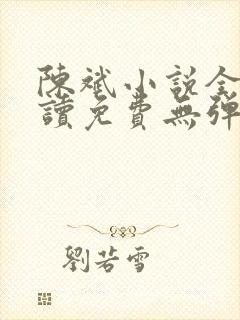 陳斌小說全
讀免費無彈
劉若雪